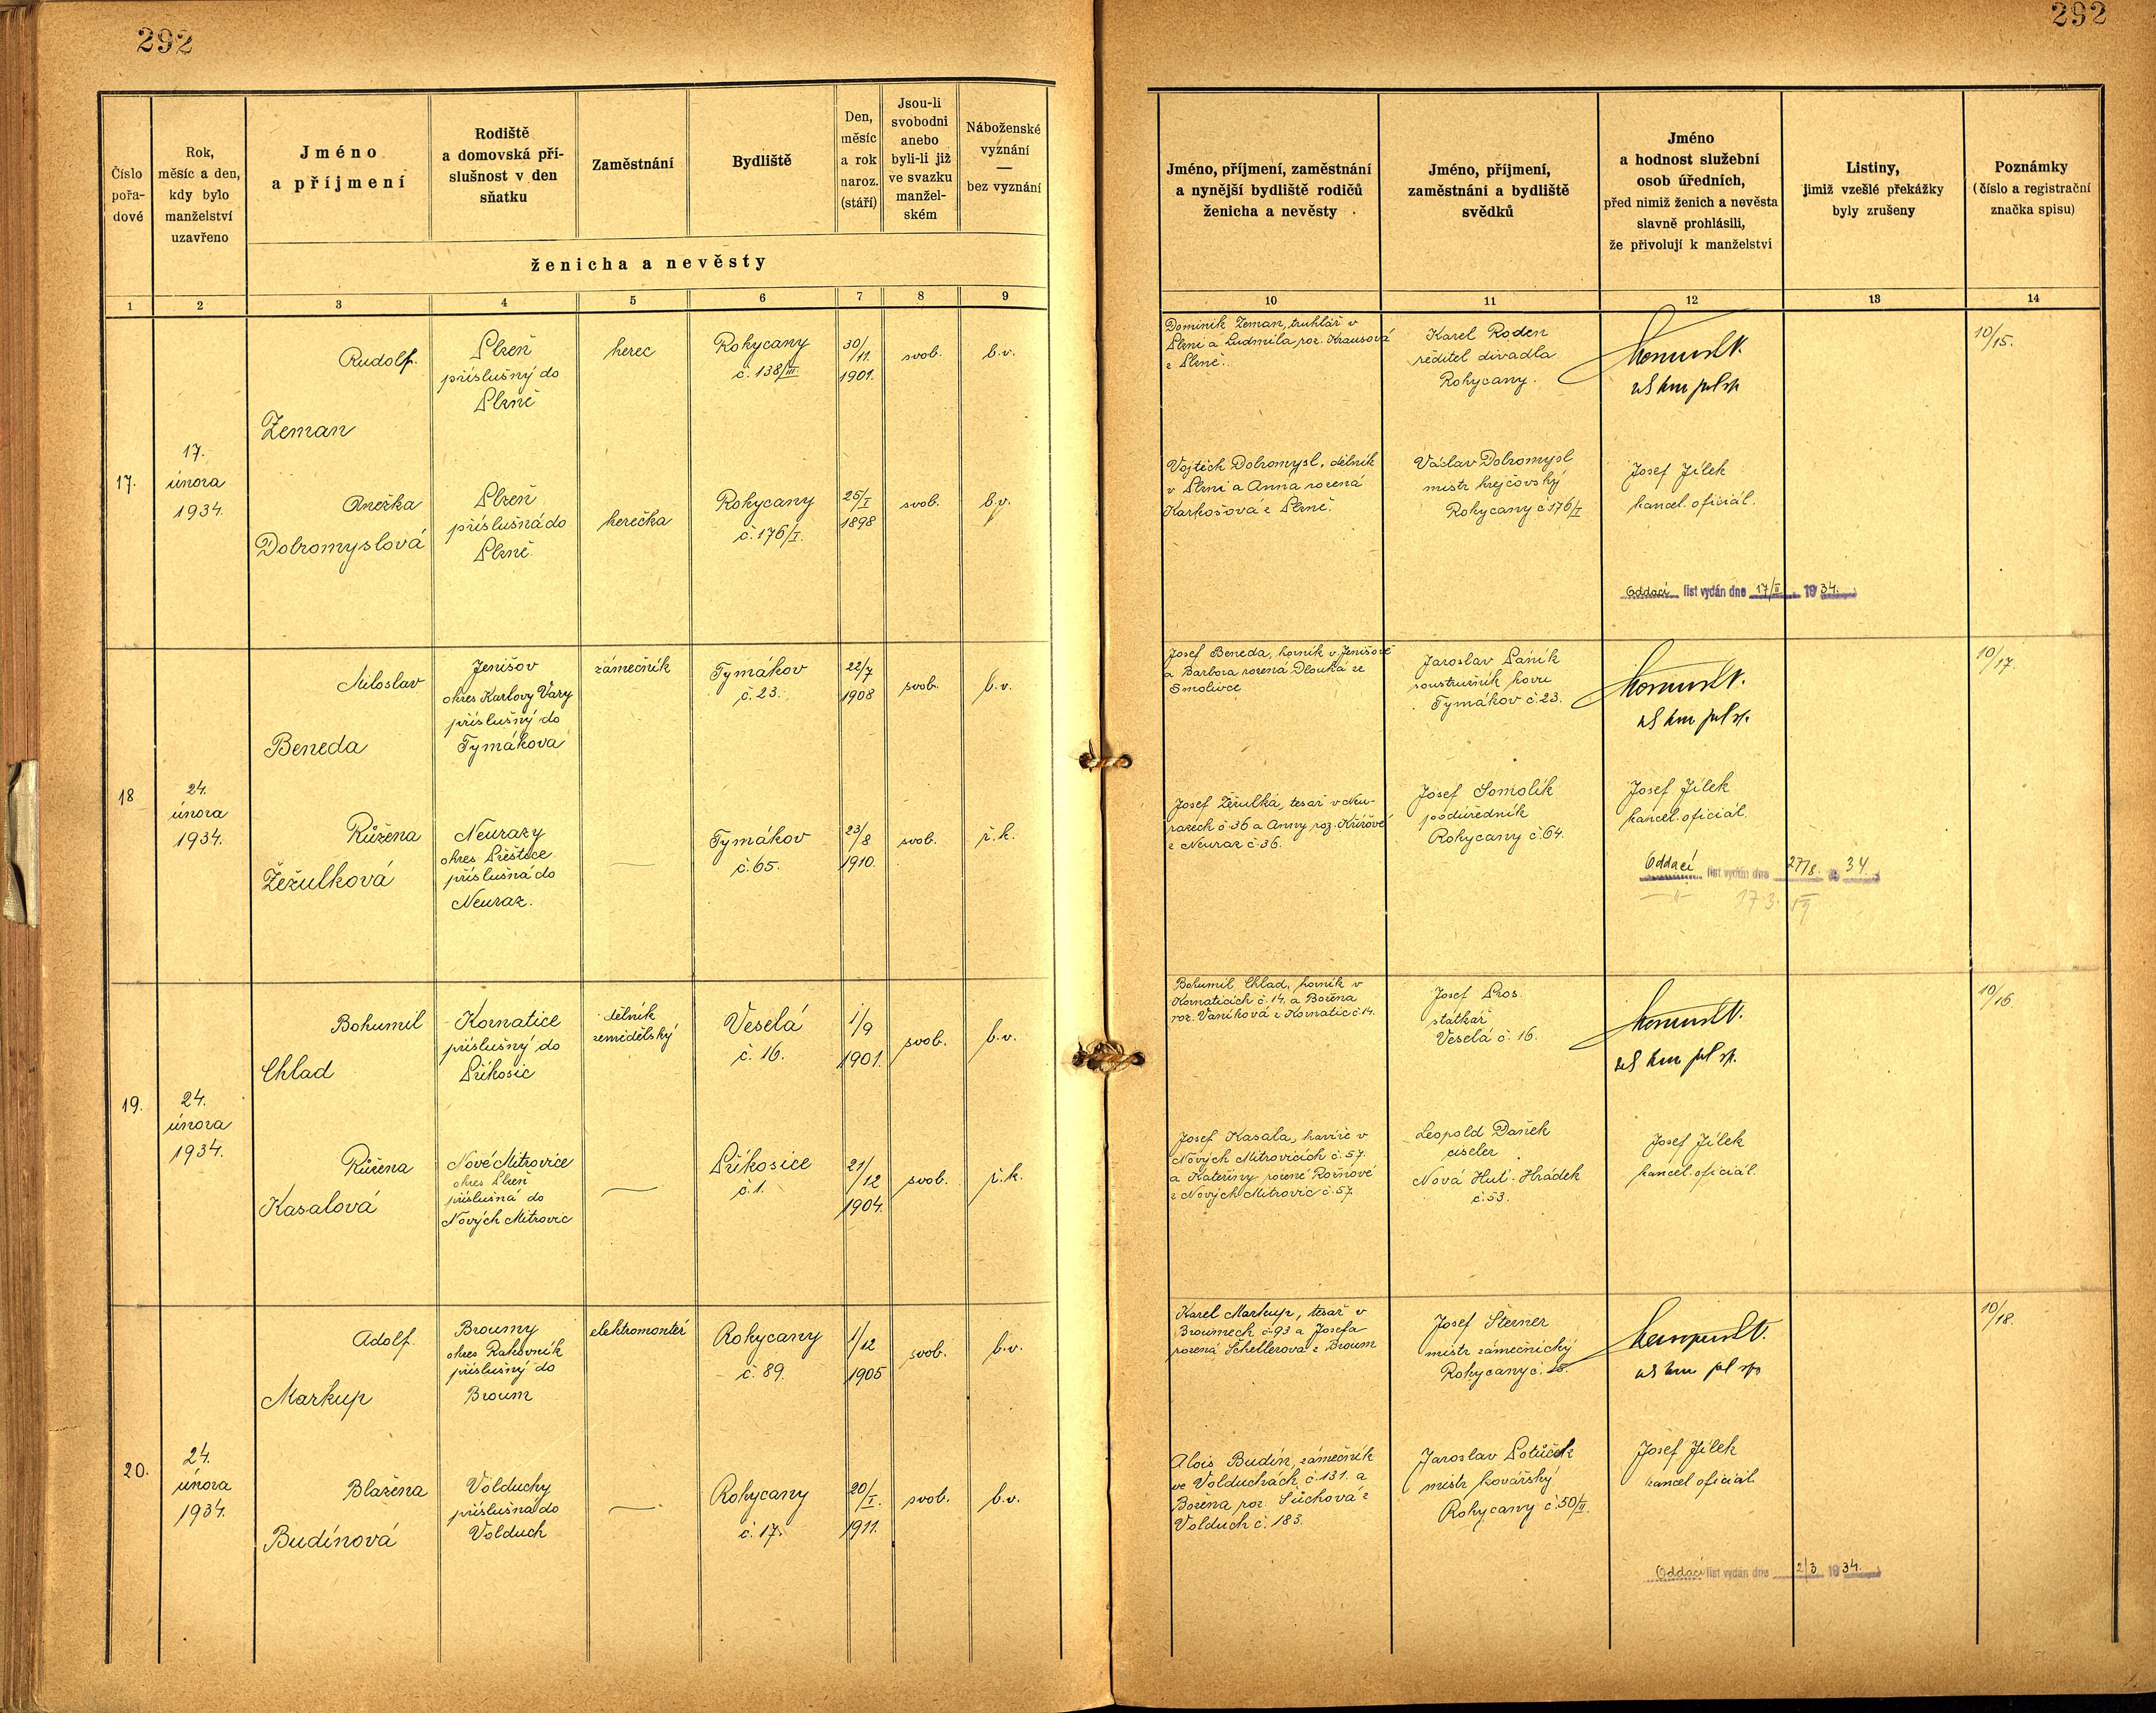 292
292
Číslo
pořa-
dové
Rok,
měsíc a den,
kdy bylo
manželství
uzavřeno
Jméno
a příjmení
Rodiště
a domovská pří-
slušnost v den
sňatku
Zaměstnání
Bydliště
Den,
měsíc
a rok
naroz.
(stáří)
Jsou-li
svobodni
anebo
byli-li již
ve svazku
manžel-
ském
Náboženské
vyznání
—
bez vyznání
ženicha a nevěsty
Jméno, příjmení, zaměstnání
a nynější bydliště rodičů
ženicha a nevěsty
Jméno, příjmení,
zaměstnání a bydliště
svědků
Jméno
a hodnost služební
osob úředních,
před nimiž ženich a nevěsta
slavně prohlásili,
že přivolují k manželství
Listiny,
jimiž vzešlé překážky
byly zrušeny
Poznámky
(číslo a registrační
značka spisu)
1 2 3 4 5 6 7 8 9 10 11 12 13 14
17.
17.
února
1934.
Rudolf
Zeman
Plzeň
příslušný do
Plzně
herec
Rokycany
č. 138/III
30/
11.
1901.
svob.
b.v.
Dominik Zeman, truhlář v
Plzni a Ludmila roz. Krausová
z Plzně.
Karel Roden
ředitel divadla
Rokycany.
10/15.
Anežka
Dobromyslová
Plzeň
příslušná do
Plzně
herečka
Rokycany
č. 176/I.
25/I
1898
svob.
b.v.
Vojtěch Dobromysl, dělník
v Plzni a Anna rozená
Karkošová z Plzně.
Václav Dobromysl
mistr krejčovský
Rokycany č 176/I
Josef Jílek
kancel. oficiál.
Oddací list vydán dne 17/II 1934.
18
24.
února
1934.
Miloslav
Beneda
Jenišov
okres Karlovy Vary
příslušný do
Tymákova
zámečník
Tymákov
č. 23.
22/7
1908
svob.
b.v.
Josef Beneda, horník v Jenišově
a Barbora rozená Dlouhá ze
Smolivce
Jaroslav Páník
soustružník kovu
Tymákov č. 23.
10/17.
Růžena
Žežulková
Neurazy
okres Přeštice
příslušná do
Neuraz.
Tymákov
č. 65.
23/8
1910.
svob.
ř.k.
Josef Žežulka, tesař v Neu-
razech č 36 a Anny roz. Křížové
z Neuraz č 36.
Josef Somolík
podúředník
Rokycany č 64.
Josef Jílek
kancel. oficiál.
Oddací list vydán dne 27/8. 1934.
19.
24.
února
1934.
Bohumil
Chlad
Kornatice
příslušný do
Příkosic
dělník
zemědělský
Veselá
č. 16.
1/9
1901.
svob.
b.v.
Bohumil Chlad, horník v
Kornaticích č. 14. a Božena
roz. Vaníková z Kornatic č. 14.
Josef Pros.
statkář
Veselá č. 16.
10/16.
Růžena
Kasalová
Nové Mitrovice
okres Plzeň
příslušná do
Nových Mitrovic
Příkosice
č. 1.
21/
12
1904.
svob.
ř.k.
Josef Kasala, havíře v
Nových Mitrovicích č. 57.
a Kateřiny rozené Rožnové
z Nových Mitrovic č. 57.
Leopold Daněk
ciseler
Nová Huť-Hrádek
č. 53.
Josef Jílek
kancel. oficiál.
20.
24.
února
1934.
Adolf
Markup
Broumy
okres Rakovník
příslušný do
Broum
elektromontér
Rokycany
č. 89.
1/12
1905
svob.
b.v.
Karel Markup, tesař v
Broumech č. 93 a Josefa
rozená Schellerová z Broum
Josef Šterner
mistr zámečnický
Rokycany č.
10/18.
Blažena
Budínová
Volduchy
příslušná do
Volduch
Rokycany
č. 17.
20/I.
1911.
svob.
b.v.
Alois Budín, zámečník
ve Volduchách č. 131. a
Božena roz. Suchová z
Volduch č. 183.
Jaroslav Potůček
mistr kovářský
Rokycany č 50/II.
Josef Jílek
kancel. oficiál.
Oddací list vydán dne 2/3 1934.